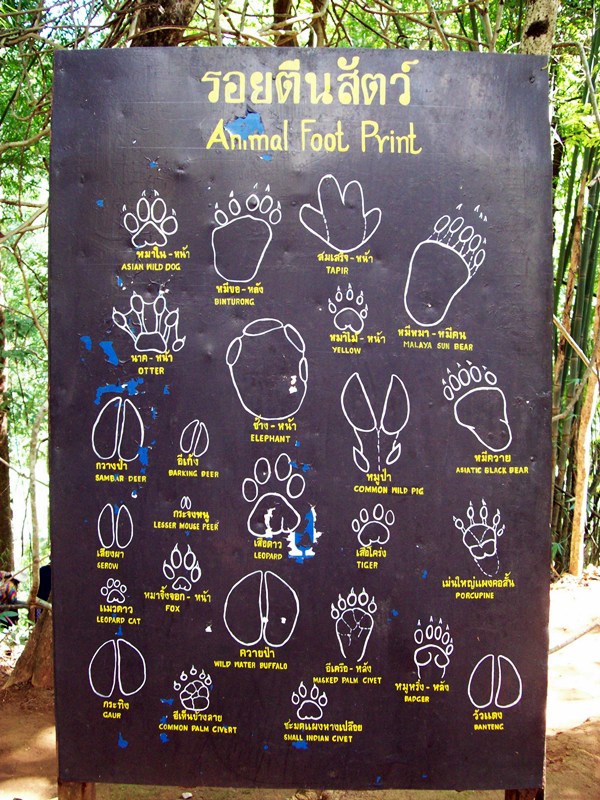 รอยตีนสัตว์
Animal Foot Print
หมาใน - หน้า
ASIAN WILD DOG
หมีขอ - หลัง
BINTURONG
สมเสร็จ - หน้า
TAPIR
หมาไม้ - หน้า
YELLOW
หมีหมา - หมีคน
MALAYA SUN BEAR
นาค - หน้า
OTTER
ช้าง - หน้า
ELEPHANT
กวางป่า
SAMBAR DEER
อีเก้ง
BARKING DEER
หมูป่า
COMMON WILD PIG
หมีควาย
ASIATIC BLACK BEAR
เสียงผา
SEROW
กระจงหนู
LESSER MOUSE PEER
เสือดาว
LEOPARD
เสือโคร่ง
TIGER
เม่นใหญ่แผงคอสั้น
PORCUPINE
แมวดาว
LEOPARD CAT
หมาจิ้งจอก - หน้า
FOX
ควายป่า
WILD WATER BUFFALO
อีเครือ - หลัง
MASKED PALM CIVET
หมูหริ่ง - หลัง
BADGER
กระทิง
GAUR
อีเห็นข้างลาย
COMMON PALM CIVERT
ชะมดแผงหางเปลือย
SMALL INDIAN CIVET
วัวแดง
BANTENG